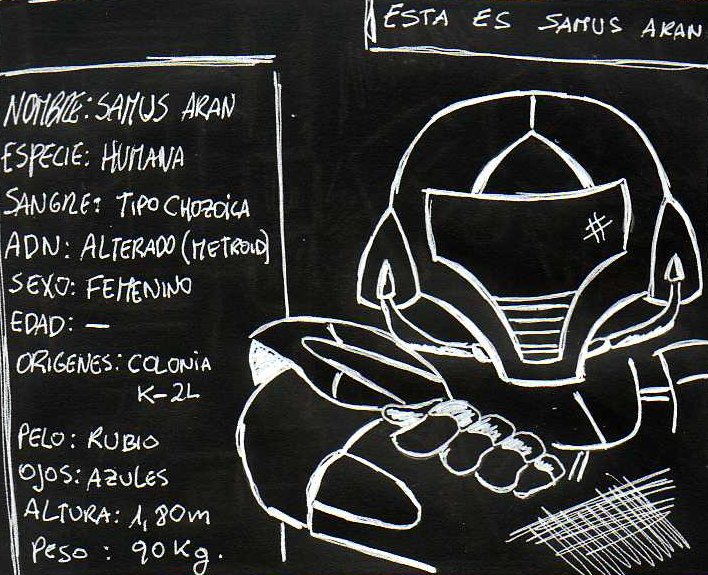 ESTA ES SAMUS ARAN
NOMBRE: SAMUS ARAN
ESPECIE: HUMANA
SANGRE: TIPO CHOZOICA
ADN: ALTERADO (METROID)
SEXO: FEMENINO
EDAD: —
ORIGENES: COLONIA
K-2L
PELO: RUBIO
OJOS: AZULES
ALTURA: 1,80m
PESO: 90Kg.